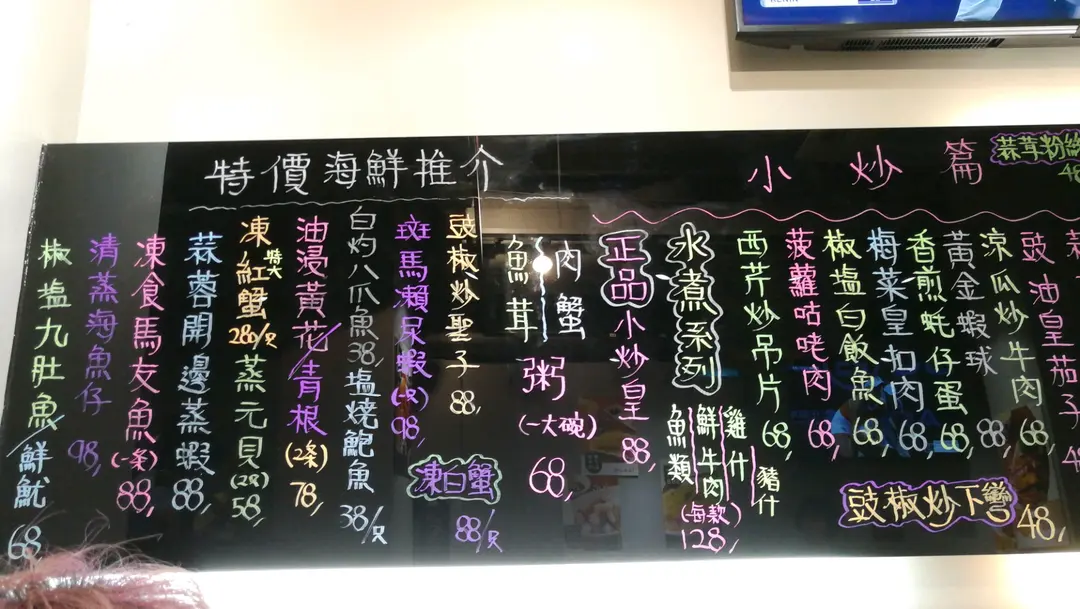 特價海鮮推介
椒塩九肚魚/鮮魷 68
清蒸海魚仔 98,
凍食馬友魚(一条) 88,
蒜蓉開邊蒸蝦 88,
凍特大紅蟹 280/只
蒸元貝(2只) 58,
油浸黃花/青根(2条) 78,
白灼八爪魚 38,
塩燒鮑魚 38/只
斑馬瀨尿蝦(一只) 98,
豉椒炒聖子 88,
凍白蟹 88/只
魚茸
肉蟹
粥(一大碗) 68,
小炒篇
正品小炒皇 88,
水煮系列
魚類
鮮牛肉
雞什
豬什
(每款) 128,
西芹炒吊片 68,
菠蘿咕咾肉 68,
椒塩白飯魚 68,
梅菜皇扣肉 68,
香煎蚝仔蛋 68,
黃金蝦球 88,
涼瓜炒牛肉 68,
豉油皇茄子 48
豉椒炒下彎 48,
蒜茸粉絲
48